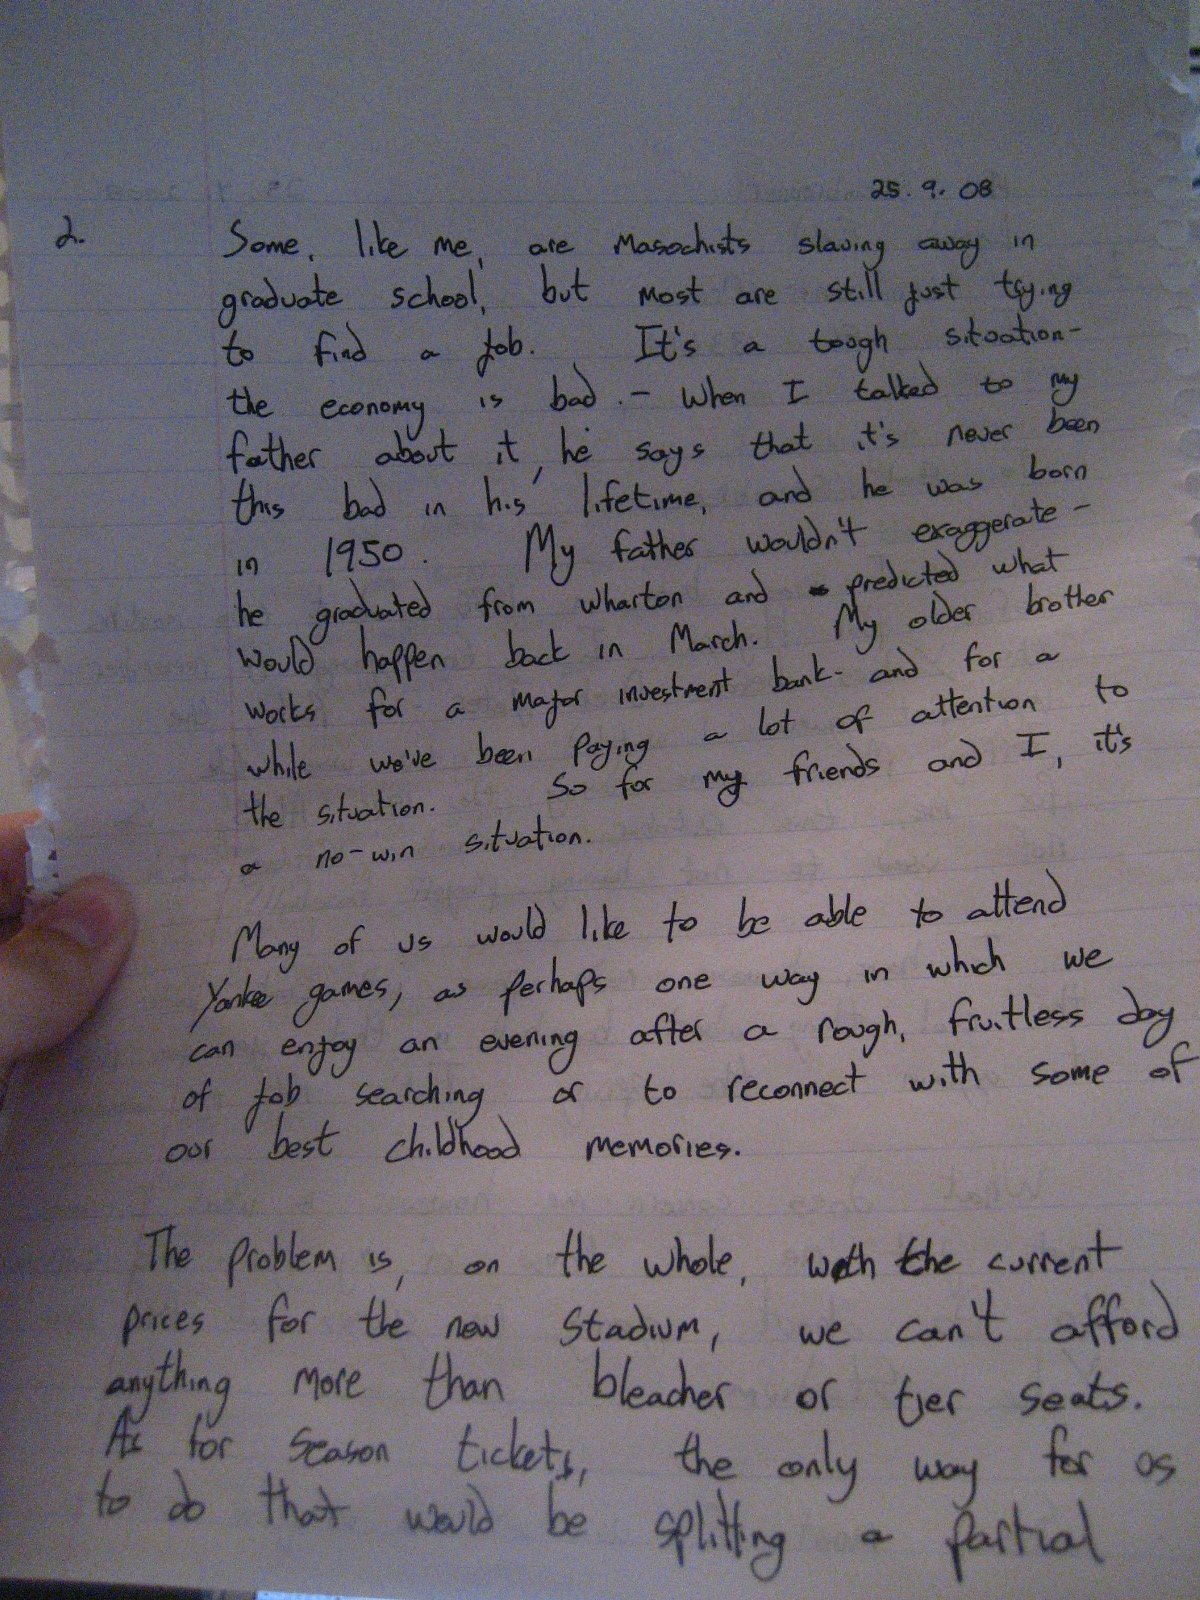 25.9.08
2. Some, like me, are masochists slaving away in
graduate school, but most are still just trying
to find a job. It's a tough situation-
the economy is bad. - When I talked to my
father about it, he says that it's never been
this bad in his lifetime, and he was born
in 1950. My father wouldn't exaggerate -
he graduated from Wharton and predicted what
would happen back in March. My older brother
works for a major investment bank- and for a
while we've been paying a lot of attention to
the situation. So for my friends and I, it's
a no-win situation.
Many of us would like to be able to attend
Yankee games, as perhaps one way in which we
can enjoy an evening after a rough, fruitless day
of job searching or to reconnect with some of
our best childhood memories.
The problem is, on the whole, with the current
prices for the new Stadium, we can't afford
anything more than bleacher or tier seats.
As for season tickets, the only way for us
to do that would be splitting a partial